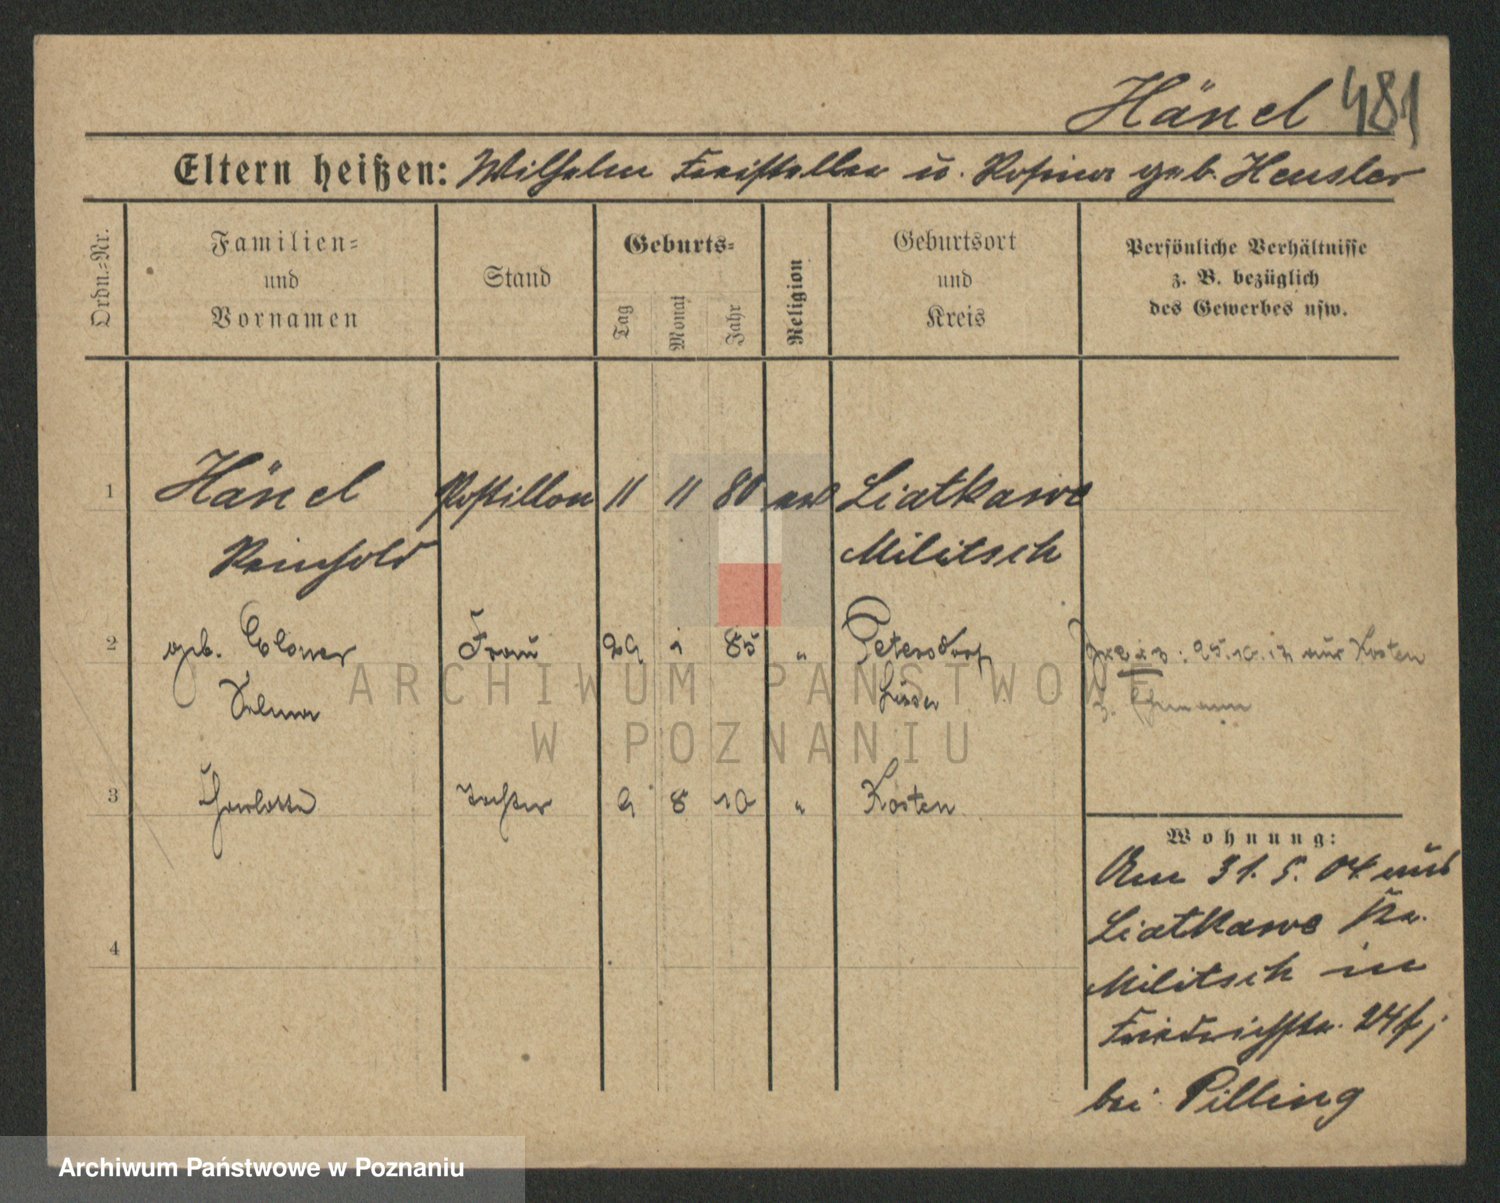 Hänel 481
Eltern heißen: Wilhelm Freisteller u. Rosina geb. Hensler
Ordn.-Nr.
Familien-
und
Vornamen
Stand
Geburts-
Tag
Monat
Jahr
Religion
Geburtsort
und
Kreis
Persönliche Verhältnisse
z. B. bezüglich
des Gewerbes usw.
1 Hänel Postillon 11 11 80 Liatkawe
Reinhold Militsch
2 geb. Frau 29 1 85 " Petersdorf
Selma
25.10.13 aus Kosten
3 Charlotte Tochter 9 8 10 " Kosten
4
Wohnung:
Am 31. 5. 04 aus
Liatkawe Kr.
Militsch in
Friedrichstr. 24
bei Pilling
ARCHIWUM PAŃSTWOWE
W POZNANIU
Archiwum Państwowe w Poznaniu